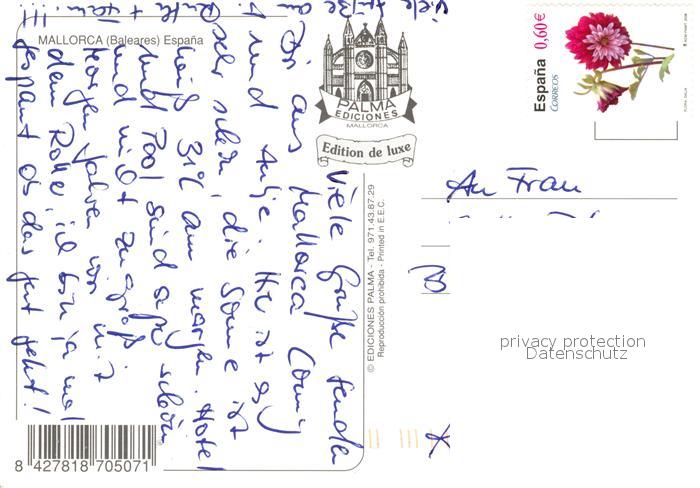 MALLORCA (Baleares) España
PALMA
EDICIONES
MALLORCA
Edition de luxe
España 0,60€
CORREOS
© EDICIONES PALMA - Tel. 971.43.87.29
Reproducción prohibida - Printed in E.E.C.
Viele Grüße senden
Dir aus Mallorca Conny
und Antje. Hier ist es
sehr schön, die Sonne ist
heiß 31°C am morgen. Hotel
und Pool sind sehr schön
und nicht zu groß.
Morgen fahren wir mit
dem Roller, ich bin ja mal
gespannt ob das gut geht!
!!!
Viele Grüße an
An Frau
privacy protection
Datenschutz
8 427818 705071